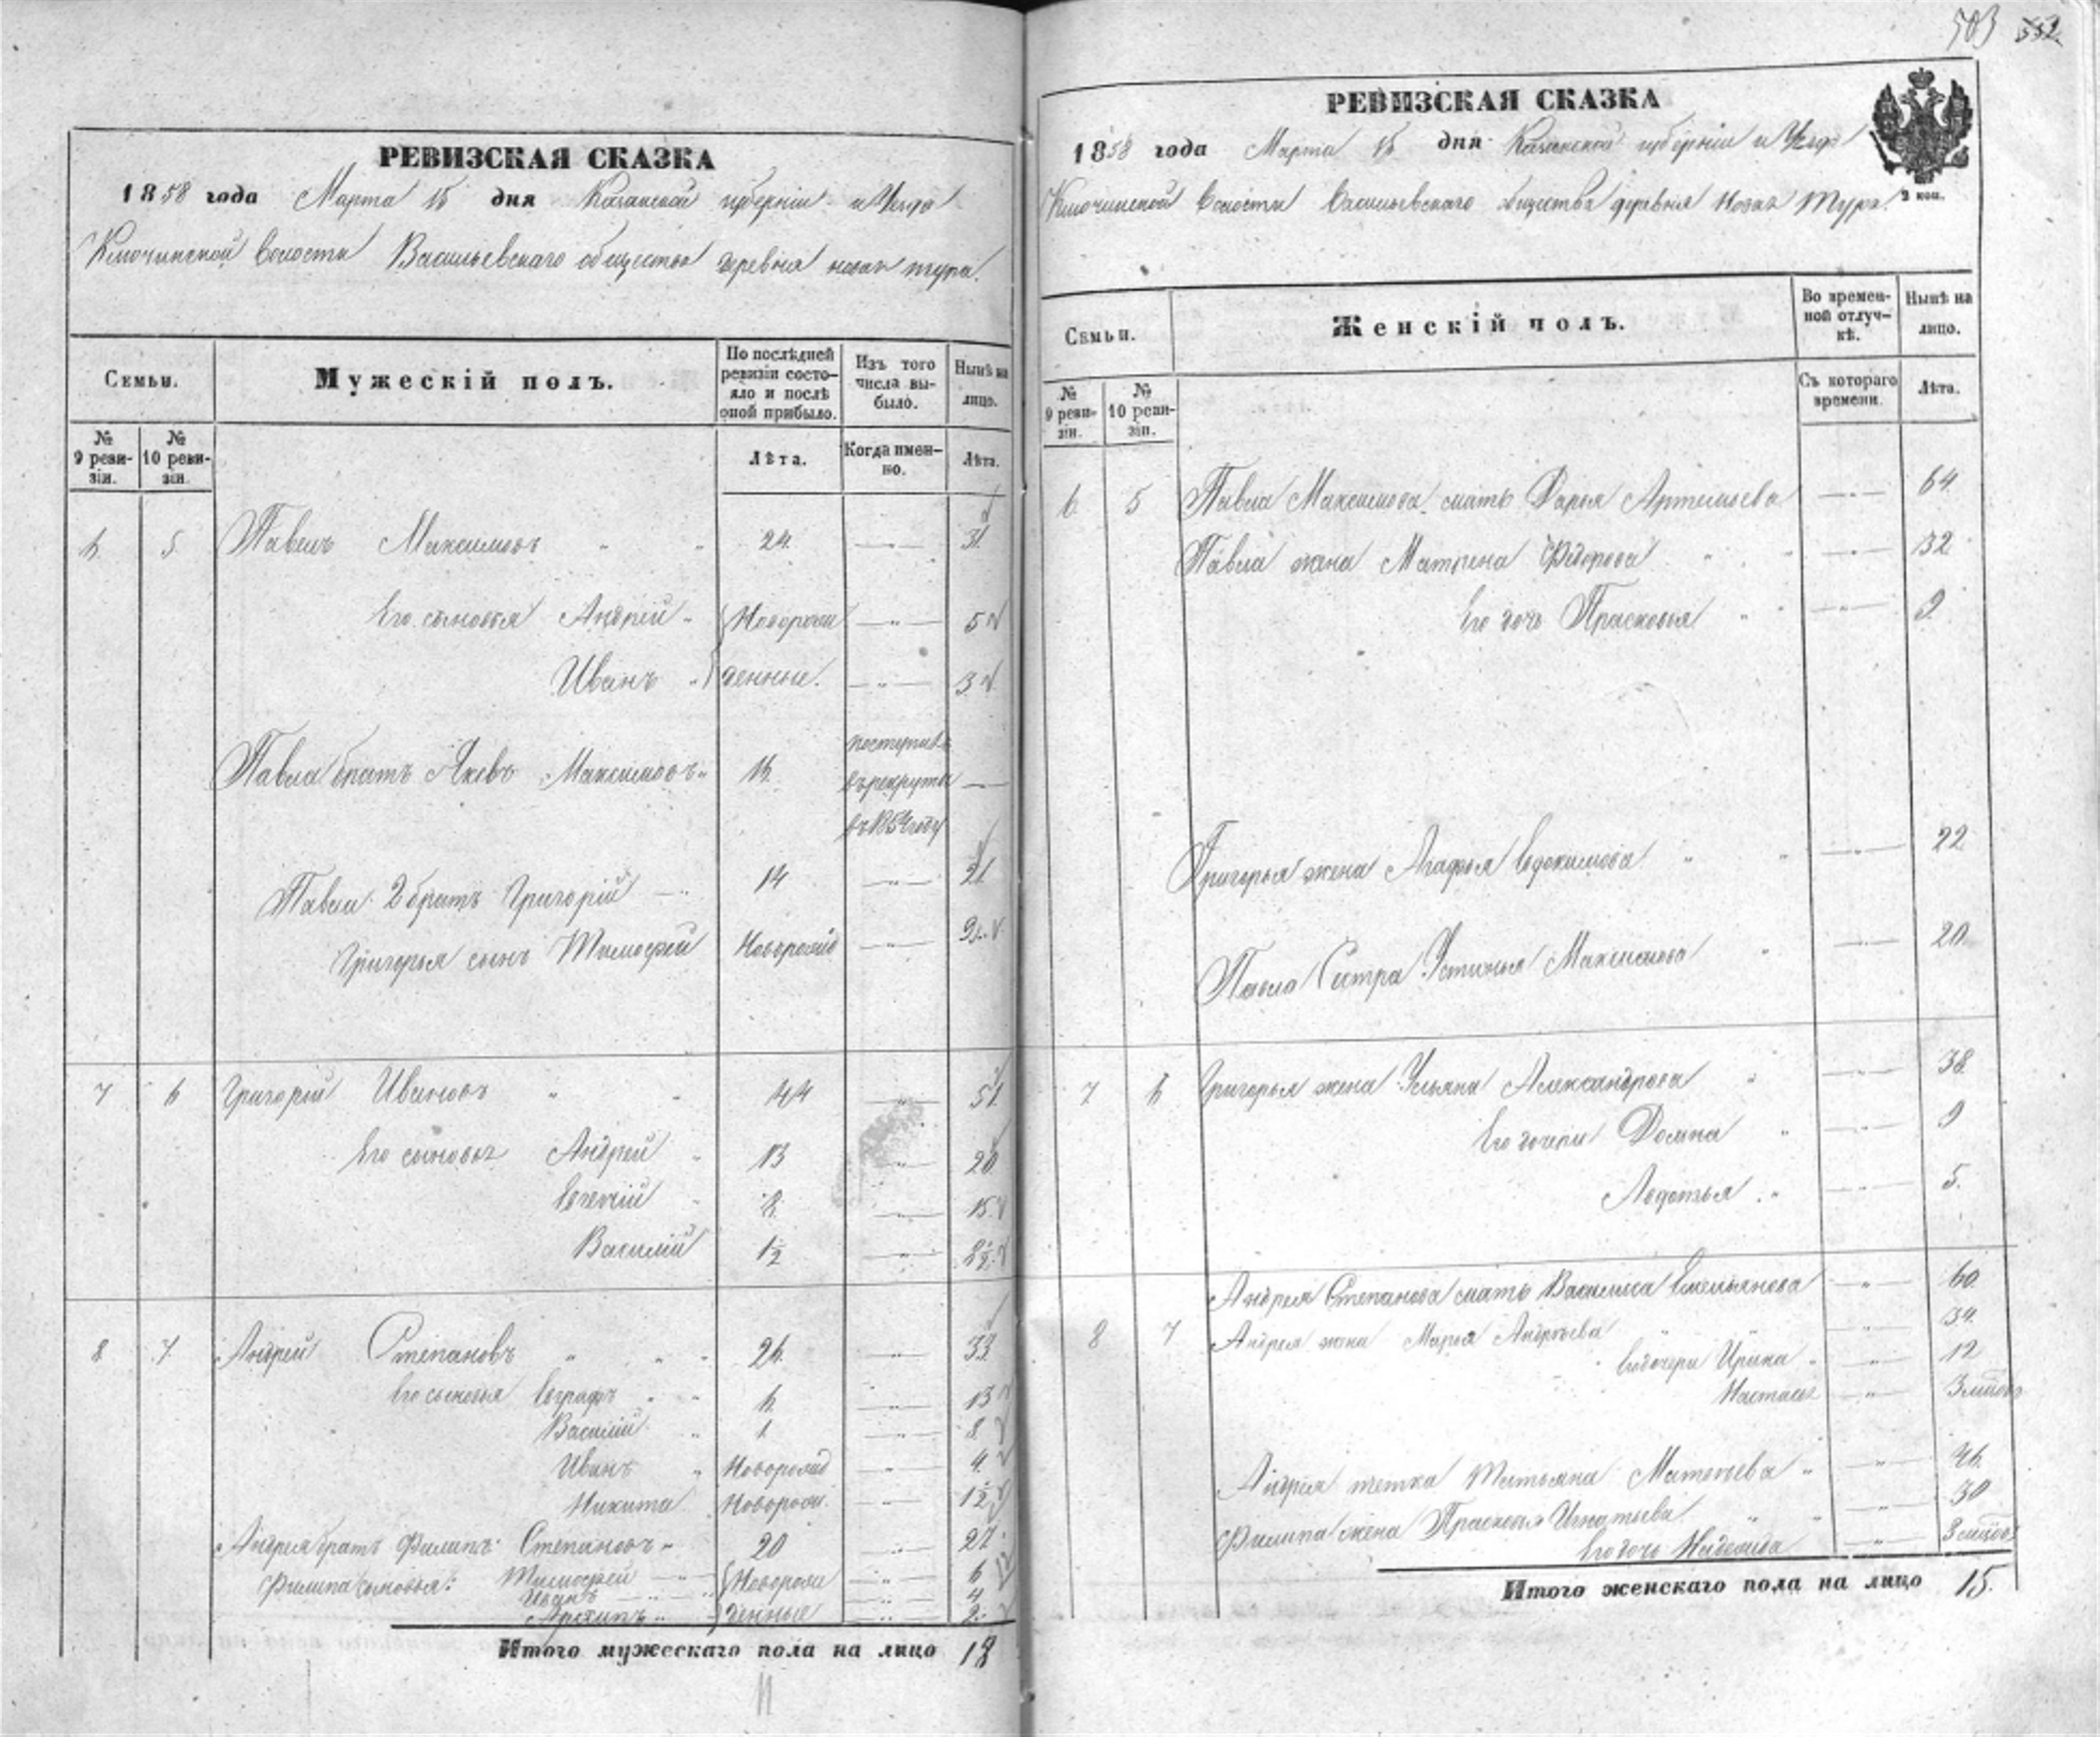 503 552
РЕВИЗСКАЯ СКАЗКА
1858 года Марта 15 дня Казанской губерніи и Уезда
Ключинской Волости Васильевскаго общества деревня новая тура.
Семьи.
Мужескій полъ.
По послѣдней ревизіи состояло и послѣ оной прибыло.
Изъ того числа выбыло.
Нынѣ на лицо.
№ 9 ревизіи.
№ 10 ревизіи.
Лѣта.
Когда именно.
Лѣта.
6. 5. Павелъ Максимовъ " " 24. —"— 31.
Его сыновья Андрей " Новорож —"— 5
Иванъ " денные. —"— 3
Павла братъ Яковъ Максимовъ " 16. поступилъ в рекруты въ 1854 году —
Павла 2 братъ Григорій —" 14 —"— 21.
Григорья сынъ Тимофей Новорожд —"—
7 6 Григорій Ивановъ " " 44 —"— 51.
Его сыновья Андрей " 13 —"— 20.
Евгеній " 8. —"— 15.
Василій 1½ —"— 8½.
8 7. Андрей Степановъ " " " 26. —"— 33.
Его сыновья Евграфъ " " 6. —"— 13
Василій " 1. —"— 8
Иванъ " Новорожд —"— 4.
Никита Новорож. —"— 1½
Андрея братъ Филипъ Степановъ " 20 —"— 27.
Филипа сыновья: Тимофей —" Новорож —"— 6
Иванъ —"— 4
Архипъ " денные —"— 2.
Итого мужескаго пола на лицо 18
РЕВИЗСКАЯ СКАЗКА
1858 года Марта 15 дня Казанской губерніи и Уезда
Ключинской Волости Васильевскаго общества деревня Новая Тура.
2 коп.
Семьи.
Женскій полъ.
Во временной отлучкѣ.
Нынѣ на лицо.
№ 9 ревизіи.
№ 10 ревизіи.
Съ котораго времени.
Лѣта.
6. 5 Павла Максимова мать Дарья Артемьева —"— 64.
Павла жена Матрена Федорова " " —"— 32
Его дочь Прасковья " " —"— 9
Григорья жена Агафья Евдокимова " " —"— 22
Павла Сестра Устинья Максимова " —"— 20.
7. 6 Григорья жена Ульяна Александрова " —"— 38.
Его дочери Домна " —"— 9
Авдотья " —"— 5.
Андрея Степанова мать Василиса Емельянова —"— 60.
8 7 Андрея жена Марья Андреева " " —"— 34.
Ево дочери Ирина " —"— 12
Настасья —"— 3 мѣсяц
Андрея тетка Татьяна Матвеева " —"— 46.
Филипа жена Прасковья Игнатьева " " —"— 30
Его дочь Надежида —"— 3 мѣсяц
Итого женскаго пола на лицо 15.